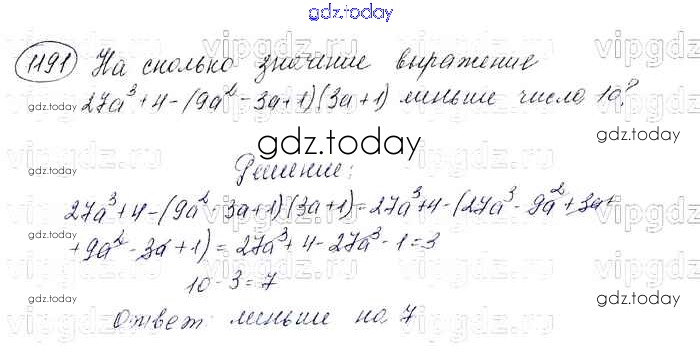 gdz.today
1191 На сколько значение выражение
27a³+4-(9a²-3a+1)(3a+1) меньше числа 10?
gdz.today
Решение:
27a³+4-(9a²-3a+1)(3a+1)=27a³+4-(27a³-9a²+3a+
+9a²-3a+1)=27a³+4-27a³-1=3
10-3=7
Ответ: меньше на 7